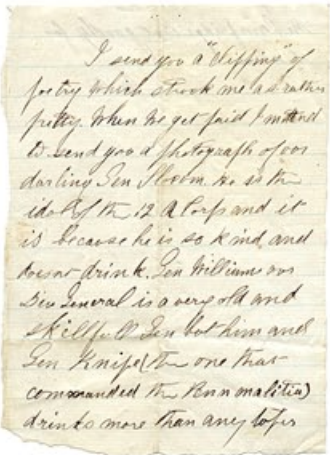 I send you a "Clipping" of
poetry which struck me as rather
pretty. When we get paid I intend
to send you a photograph of our
darling Gen Slocum. He is the
idol of the 12 A Corps and it
is because he is so kind and
doesnt drink. Gen Williams our
Div General is a very old and
skillful Gen but him and
Gen Knipe (the one that
commanded the Penn malitia)
drinks more than any